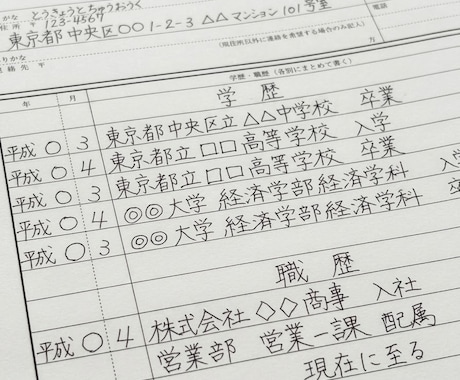 りがな とうきょうとちゅうおうく
住所 〒123-4567
東京都中央区〇〇1-2-3 △△マンション101号室
電話
りがな
連絡先 〒
(現住所以外に連絡を希望する場合のみ記入)
方
年 月 学歴・職歴(各別にまとめて書く)
学歴
平成 〇 3 東京都中央区立△△中学校 卒業
平成 〇 4 東京都立□□高等学校 入学
平成 〇 3 東京都立□□高等学校 卒業
平成 〇 4 ◎◎大学 経済学部経済学科 入
平成 〇 3 ◎◎大学 経済学部経済学科 卒
職歴
平成 〇 4 株式会社◇◇商事 入社
営業部 営業一課 配属
現在に至る